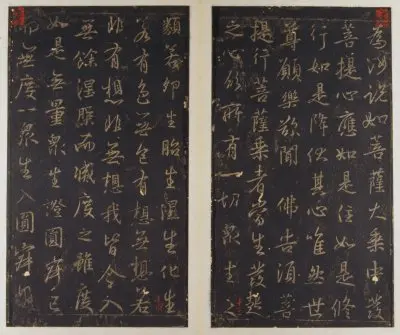 為汝說如菩薩大乘中發
菩提心應如是住如是修
行如是降伏其心唯然世
尊願樂欲聞 佛告須菩
提行菩薩乘者當生發趣
之心 所有一切衆生之
類若卵生胎生濕生化生
若有色無色有想無想若
非有想非無想我皆令入
無餘涅槃而滅度之雖度
如是無量衆生證圓寂已
而無度衆生入圓寂